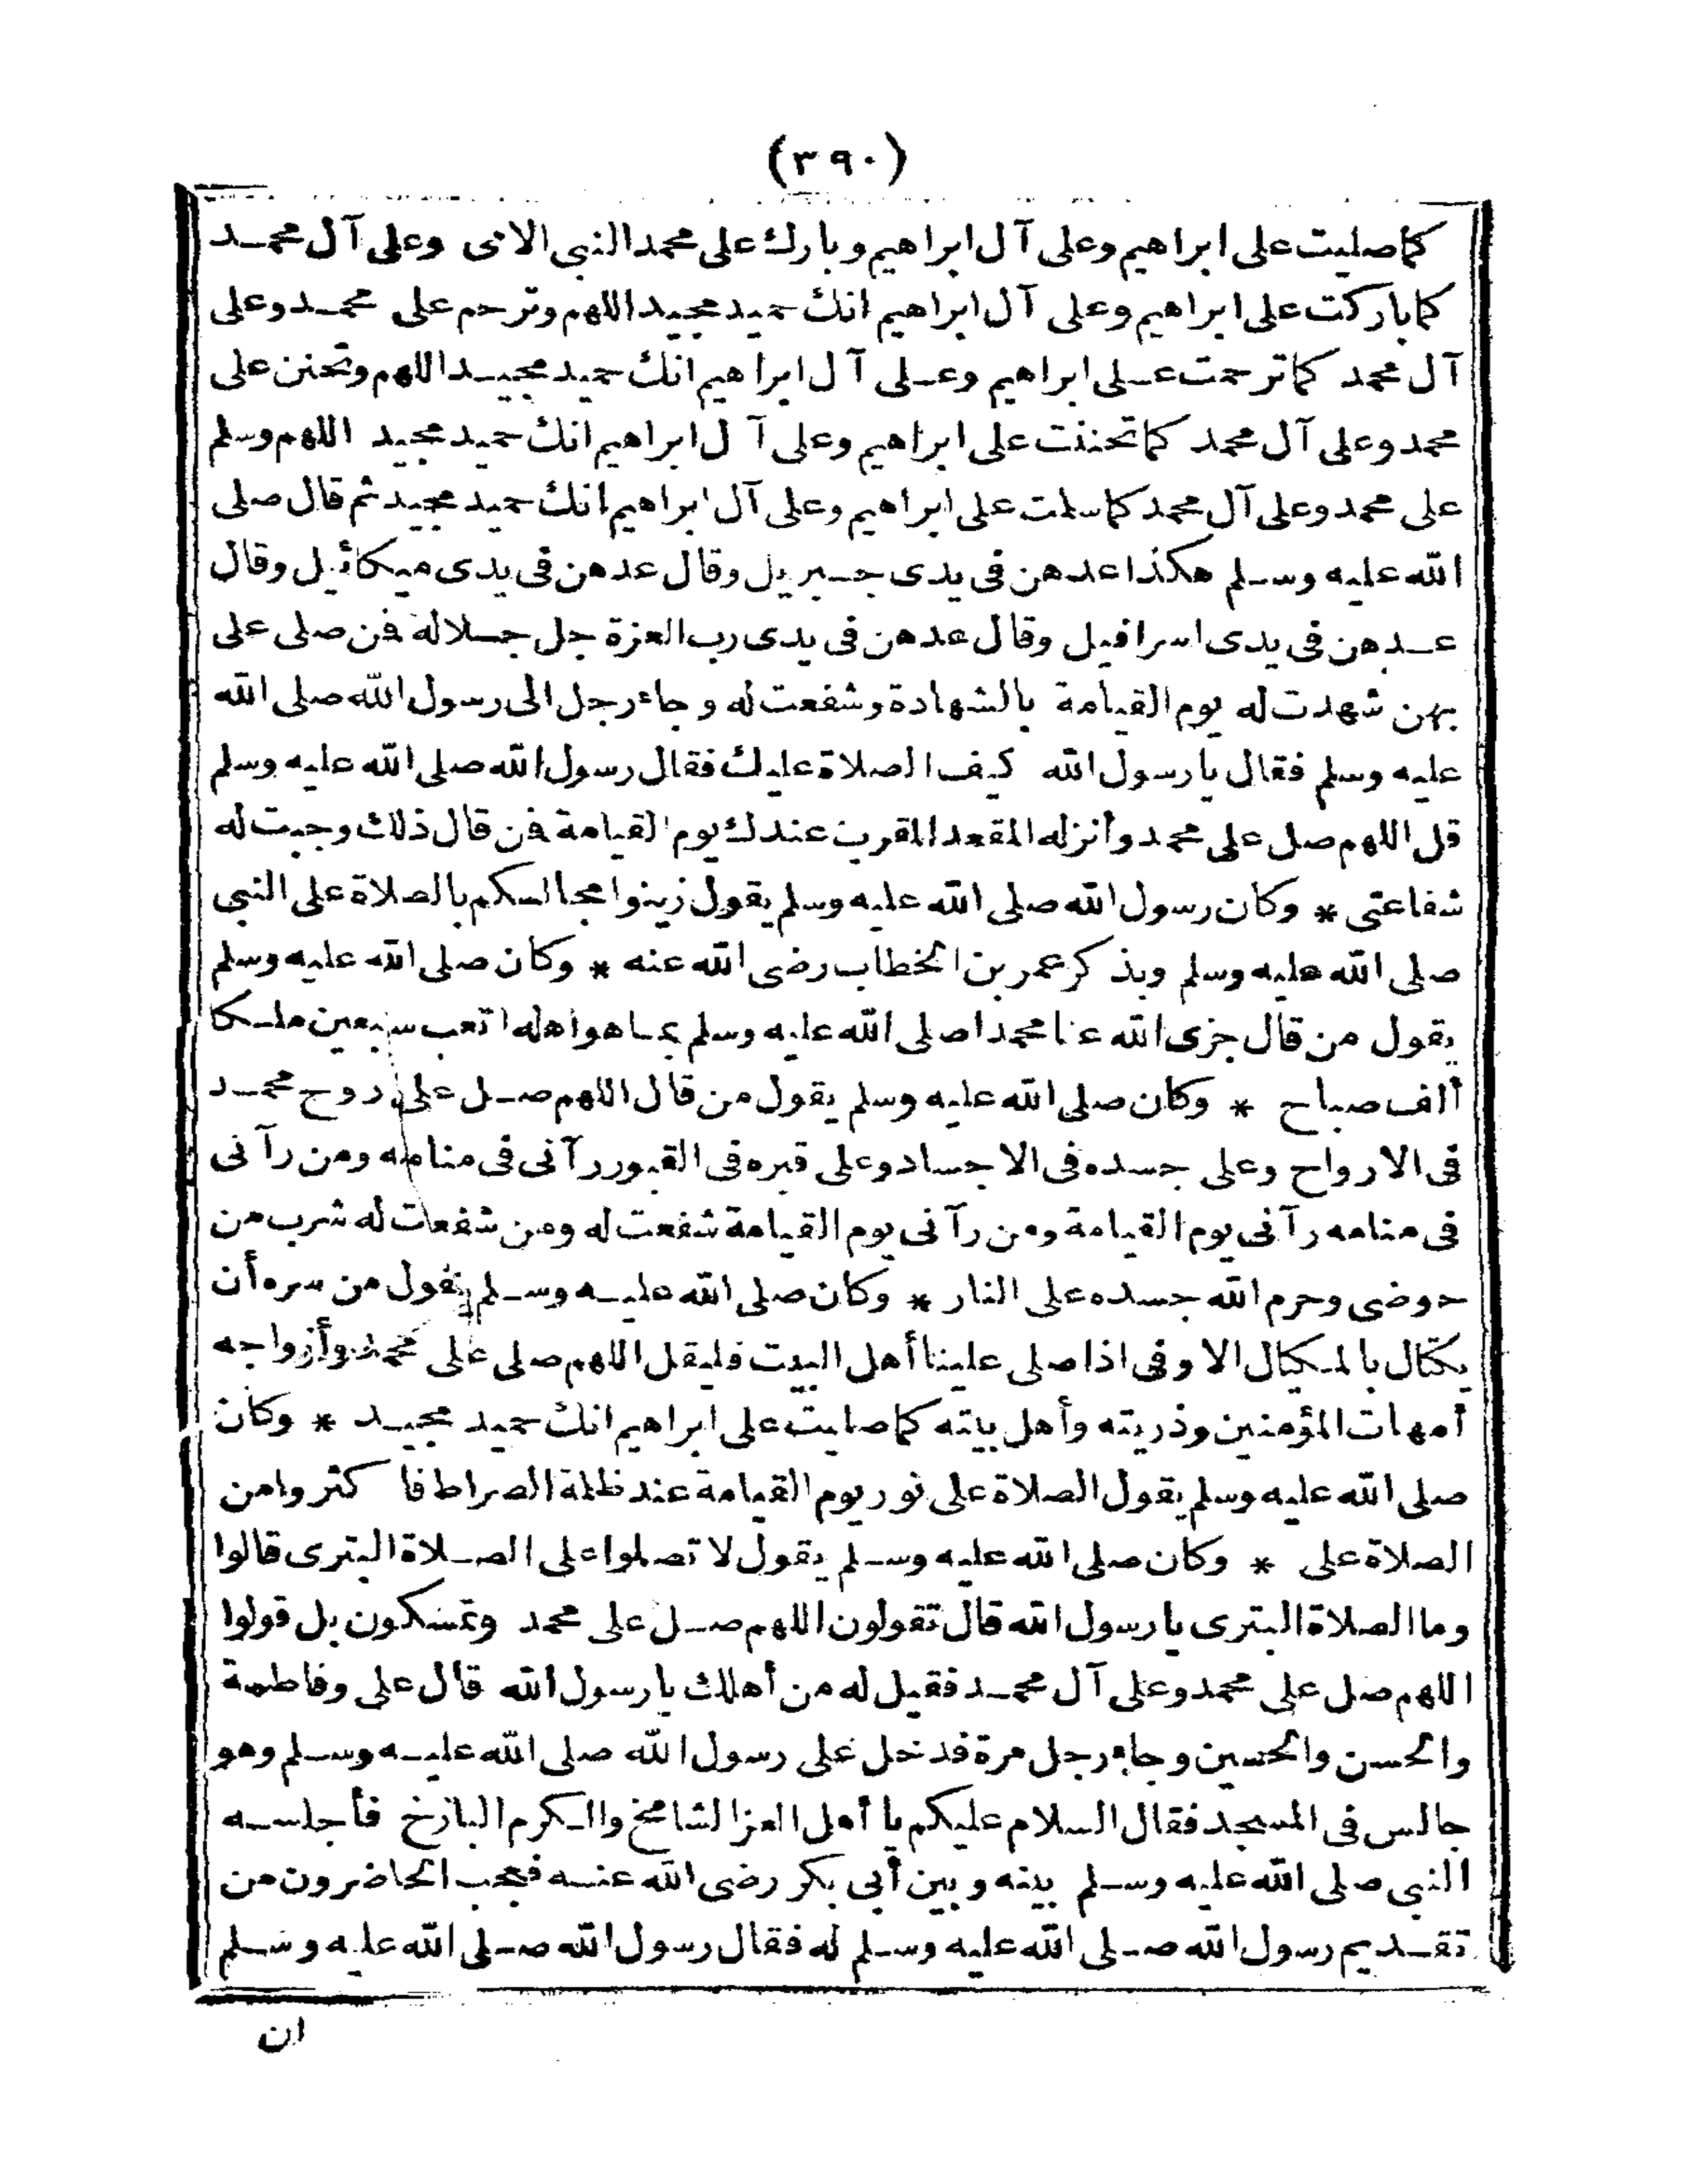 (٣٩٠)
كما صليت على ابراهيم وعلى آل ابراهيم وبارك على محمد النبى الامى وعلى آل محمد
كما باركت على ابراهيم وعلى آل ابراهيم انك حميد مجيد اللهم وترحم على محمد وعلى
آل محمد كما ترحمت على ابراهيم وعلى آل ابراهيم انك حميد مجيد اللهم وتحنن على
محمد وعلى آل محمد كما تحننت على ابراهيم وعلى آل ابراهيم انك حميد مجيد اللهم وسلم
على محمد وعلى آل محمد كما سلمت على ابراهيم وعلى آل ابراهيم انك حميد مجيد ثم قال صلى
الله عليه وسلم هكذا عدهن فى يدى جبريل وقال عدهن فى يدى ميكائيل وقال
عدهن فى يدى اسرافيل وقال عدهن فى يدى رب العزة جل جلاله فمن صلى على
بهن شهدت له يوم القيامة بالشهادة وشفعت له وجاء رجل الى رسول الله صلى الله
عليه وسلم فقال يا رسول الله كيف الصلاة عليك فقال رسول الله صلى الله عليه وسلم
قل اللهم صل على محمد وأنزله المقعد المقرب عندك يوم القيامة فمن قال ذلك وجبت له
شفاعتى * وكان رسول الله صلى الله عليه وسلم يقول زينوا مجالسكم بالصلاة على النبى
صلى الله عليه وسلم وبذكر عمر بن الخطاب رضى الله عنه * وكان صلى الله عليه وسلم
يقول من قال جزى الله عنا محمدا صلى الله عليه وسلم بما هو أهله اتعب سبعين ملكا
ألف صباح * وكان صلى الله عليه وسلم يقول من قال اللهم صل على روح محمد
فى الارواح وعلى جسده فى الاجساد وعلى قبره فى القبور رآنى فى منامه ومن رآنى
فى منامه رآنى يوم القيامة ومن رآنى يوم القيامة شفعت له ومن شفعت له شرب من
حوضى وحرم الله جسده على النار * وكان صلى الله عليه وسلم يقول من سره أن
يكتال بالمكيال الاوفى اذا صلى علينا أهل البيت فليقل اللهم صلى على محمد وأزواجه
أمهات المؤمنين وذريته وأهل بيته كما صليت على ابراهيم انك حميد مجيد * وكان
صلى الله عليه وسلم يقول الصلاة على نور يوم القيامة عند ظلمة الصراط فاكثروا من
الصلاة على * وكان صلى الله عليه وسلم يقول لا تصلوا على الصلاة البترى قالوا
وما الصلاة البترى يا رسول الله قال تقولون اللهم صل على محمد وتمسكون بل قولوا
اللهم صل على محمد وعلى آل محمد فقيل له من أهلك يا رسول الله قال على وفاطمة
والحسن والحسين وجاء رجل مرة فدخل على رسول الله صلى الله عليه وسلم وهو
جالس فى المسجد فقال السلام عليكم يا أهل العز الشامخ والكرم الباذخ فأجلسه
النبى صلى الله عليه وسلم بينه وبين أبى بكر رضى الله عنه فعجب الحاضرون من
تقديم رسول الله صلى الله عليه وسلم له فقال رسول الله صلى الله عليه وسلم
ان